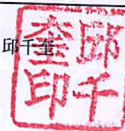 邱千奎
邱千
奎印